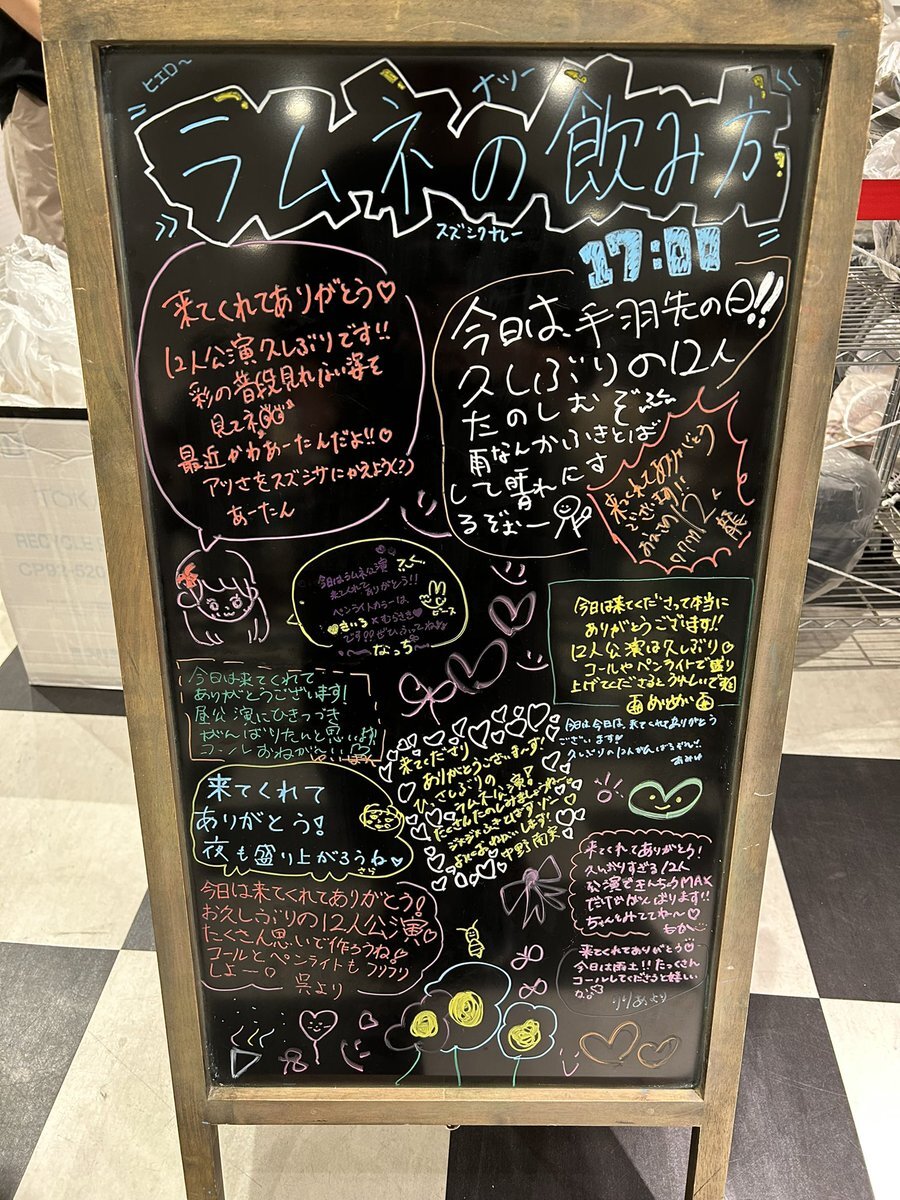 ヒエロ〜
ナツー
ラムネの飲み方
スズシクナレー
17:00
来てくれてありがとう♡
12人公演久しぶりです!!
彩の普段見れない姿を
見てネ
最近かわあーたんだよ!!♡
アツさをスズシサにかえよう(?)
あーたん
今日は、手羽先の日!!
久しぶりの12人
たのしむぞ
雨なんかふきとば
して晴れにす
るぞぉー
来てくれてありがとう
ございます!!
今日はラムネ公演
来てくれて
ありがとう!!
ペンライトカラーは、
きいろ×むらさき♡
です!!ぜひふってね
なっち
ピース
今日は来てくださって本当に
ありがとうございます!!
12人公演は久しぶり♡
コールやペンライトで盛り
上げてくださるとうれしいです
めいめい
今日は来てくれて
ありがとうございます!
昼公演にひきつづき
がんばりたいと思いよ
コールおねがーい♡
今日は今日は、来てくれてありがとう
ございます!!
久しぶりの12人がんばるぞん!
来てくださり
ありがとうございまーす!
ひっさしぶりの
ラムネ公演!
たくさんたのしみましょうねー
ジャジャふきとばすゾー
よろしくおねがいします!
中野南実
来てくれて
ありがとう!
夜も盛り上がろうね♡
さら
来てくれてありがとう!
久しぶりすぎる12人
公演できんちょうMAX
だけどがんばります!!
ちゃんとみててねー♡
もか
今日は来てくれてありがとう!
お久しぶりの12人公演♡
たくさん思いで作ろうね!
コールとペンライトもフリフリ
しよー♡
呉より
来てくれてありがとう♡
今日は雨土!!たっくさん
コールしてくださると嬉しい
な♡
りりあより